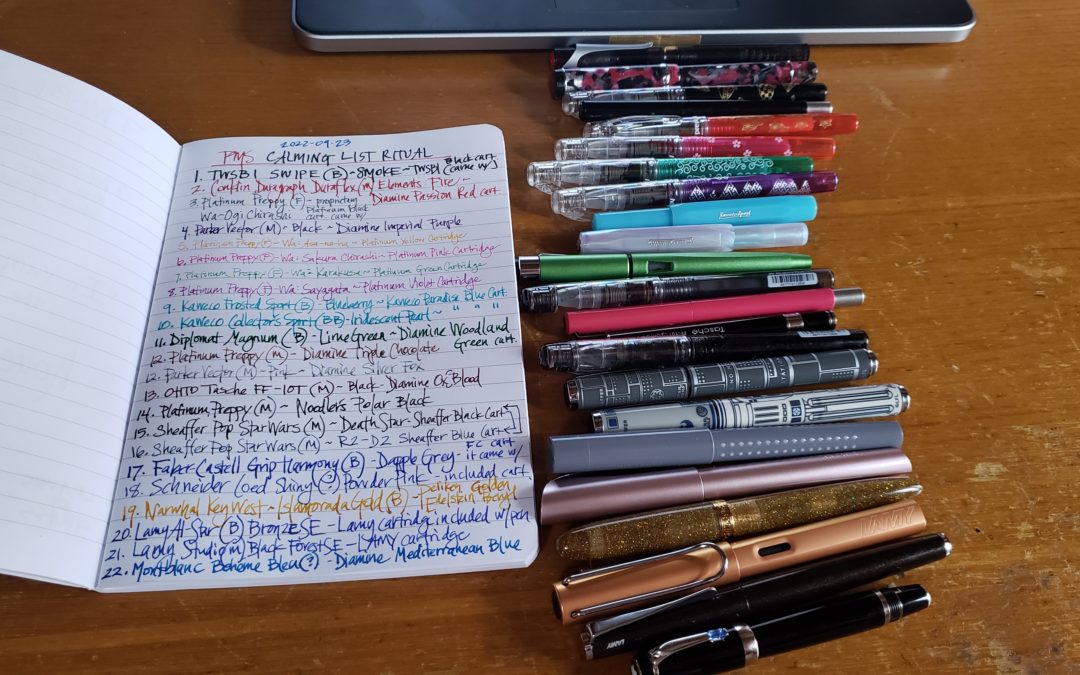 2022-09-23
PMS CALMING LIST RITUAL
1. TWSBI SWIPE (B) - SMOKE - TWSBI Black cart (came w/)
2. Conklin Duragraph Duraflex (M) Elements Fire -
Diamine Passion Red cart.
3. Platinum Preppy (F) - proprietary
Wa-Ogi Chirashi Platinum Black cart. came w/
4. Parker Vector (M) - Black ~ Diamine Imperial Purple
5. Platinum Preppy (F) - Wa- ~ Platinum Yellow Cartridge
6. Platinum Preppy (F) - Wa- Sakura Chirashi ~ Platinum Pink Cartridge
7. Platinum Preppy (F) - Wa- Karakusa ~ Platinum Green Cartridge
8. Platinum Preppy (F) - Wa- Sayagata ~ Platinum Violet Cartridge
9. Kaweco Frosted Sport (B) - Blueberry ~ Kaweco Paradise Blue Cart.
10. Kaweco Collector's Sport (BB) - Iridescent Pearl ~ " " "
11. Diplomat Magnum (B) - Lime Green ~ Diamine Woodland
Green cart.
12. Platinum Preppy (M) - Diamine Triple Chocolate
12. Parker Vector (M) - Pink - Diamine Silver Fox
13. OHTO Tasche FF-10T (M) - Black - Diamine Ox Blood
14. Platinum Preppy (M) ~ Noodlers Polar Black
15. Sheaffer Pop Star Wars (M) ~ Death Star - Sheaffer Black Cart
16. Sheaffer Pop Star Wars (M) ~ R2-D2 Sheaffer Blue cart
17. Faber-Castell Grip Harmony (B) - Dapple Grey - FC cart it came w/
18. Schneider Loed Shiny (?) Powder Pink - included cart
19. Narwhal Key West - Islamorada Gold (B) - Pelikan Golden
Edelstein Beryl
20. Lamy Al-Star (B) Bronze SE - Lamy cartridge included w/ pen
21. Lamy Studio (M) Black Forest SE - LAMY cartridge
22. Montblanc Bohème Bleu (?) - Diamine Mediterranean Blue
Tasche
LAMY
LAMY